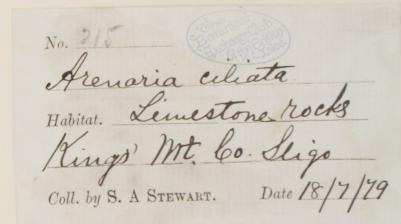 No. 215
Arenaria ciliata
Habitat. Limestone rocks
Kings' Mt. Co. Sligo
Coll. by S. A Stewart. Date 18/7/79